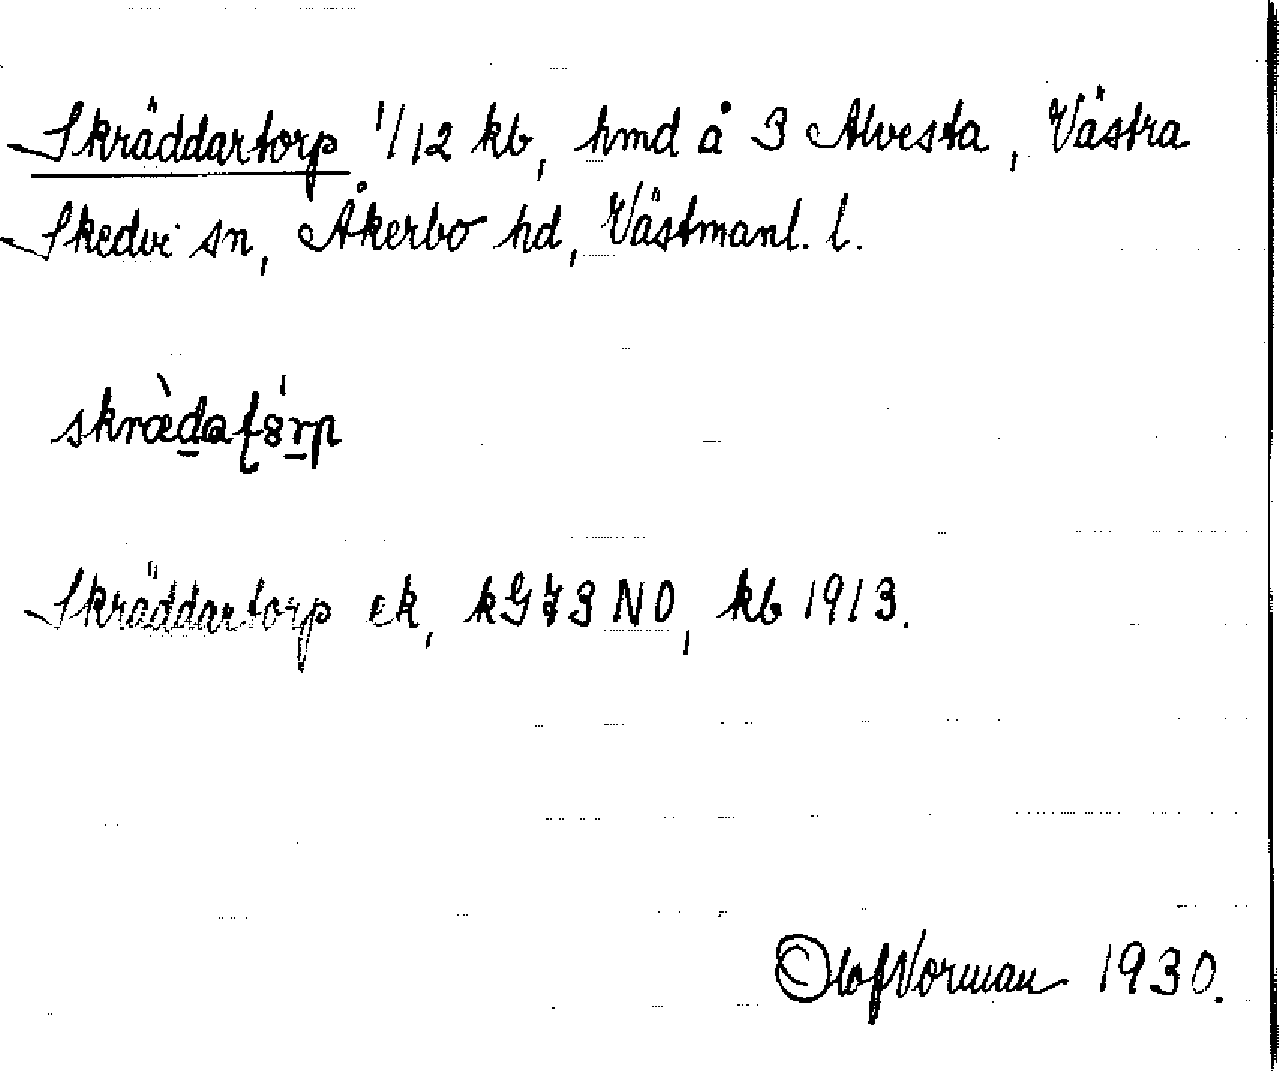 Skräddartorp 1/12 kb, hmd å 3 Alvesta, Västra
Skedvi sn, Åkerbo hd, Västmanl. l.
skræ̀datȣ́rp
Skräddartorp ek, kG73NO, kb 1913.
Olof Norman 1930.